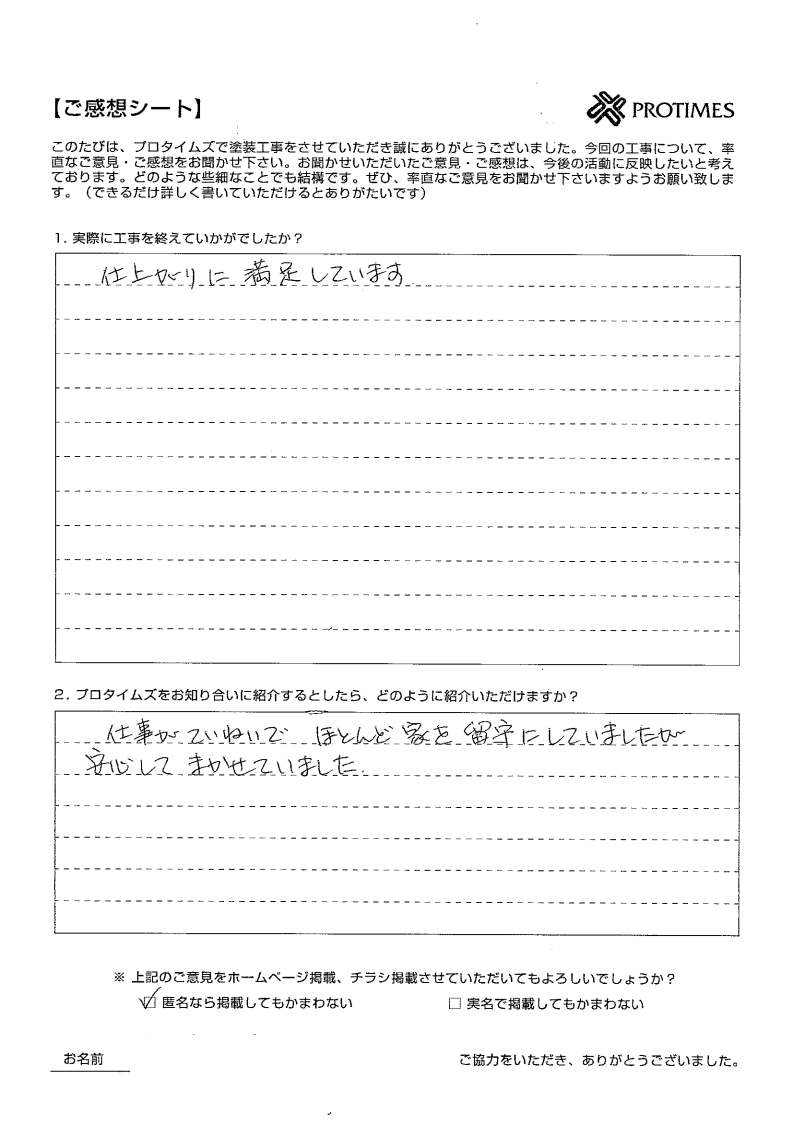 【ご感想シート】
PROTIMES
このたびは、プロタイムズで塗装工事をさせていただき誠にありがとうございました。今回の工事について、率
直なご意見・ご感想をお聞かせ下さい。お聞かせいただいたご意見・ご感想は、今後の活動に反映したいと考え
ております。どのような些細なことでも結構です。ぜひ、率直なご意見をお聞かせ下さいますようお願い致しま
す。（できるだけ詳しく書いていただけるとありがたいです）
1. 実際に工事を終えていかがでしたか？
仕上がりに満足しています
2. プロタイムズをお知り合いに紹介するとしたら、どのように紹介いただけますか？
仕事がていねいで ほとんど家を留守にしていましたが
安心して まかせていました.
※ 上記のご意見をホームページ掲載、チラシ掲載させていただいてもよろしいでしょうか？
☑ 匿名なら掲載してもかまわない □ 実名で掲載してもかまわない
お名前 ご協力をいただき、ありがとうございました。